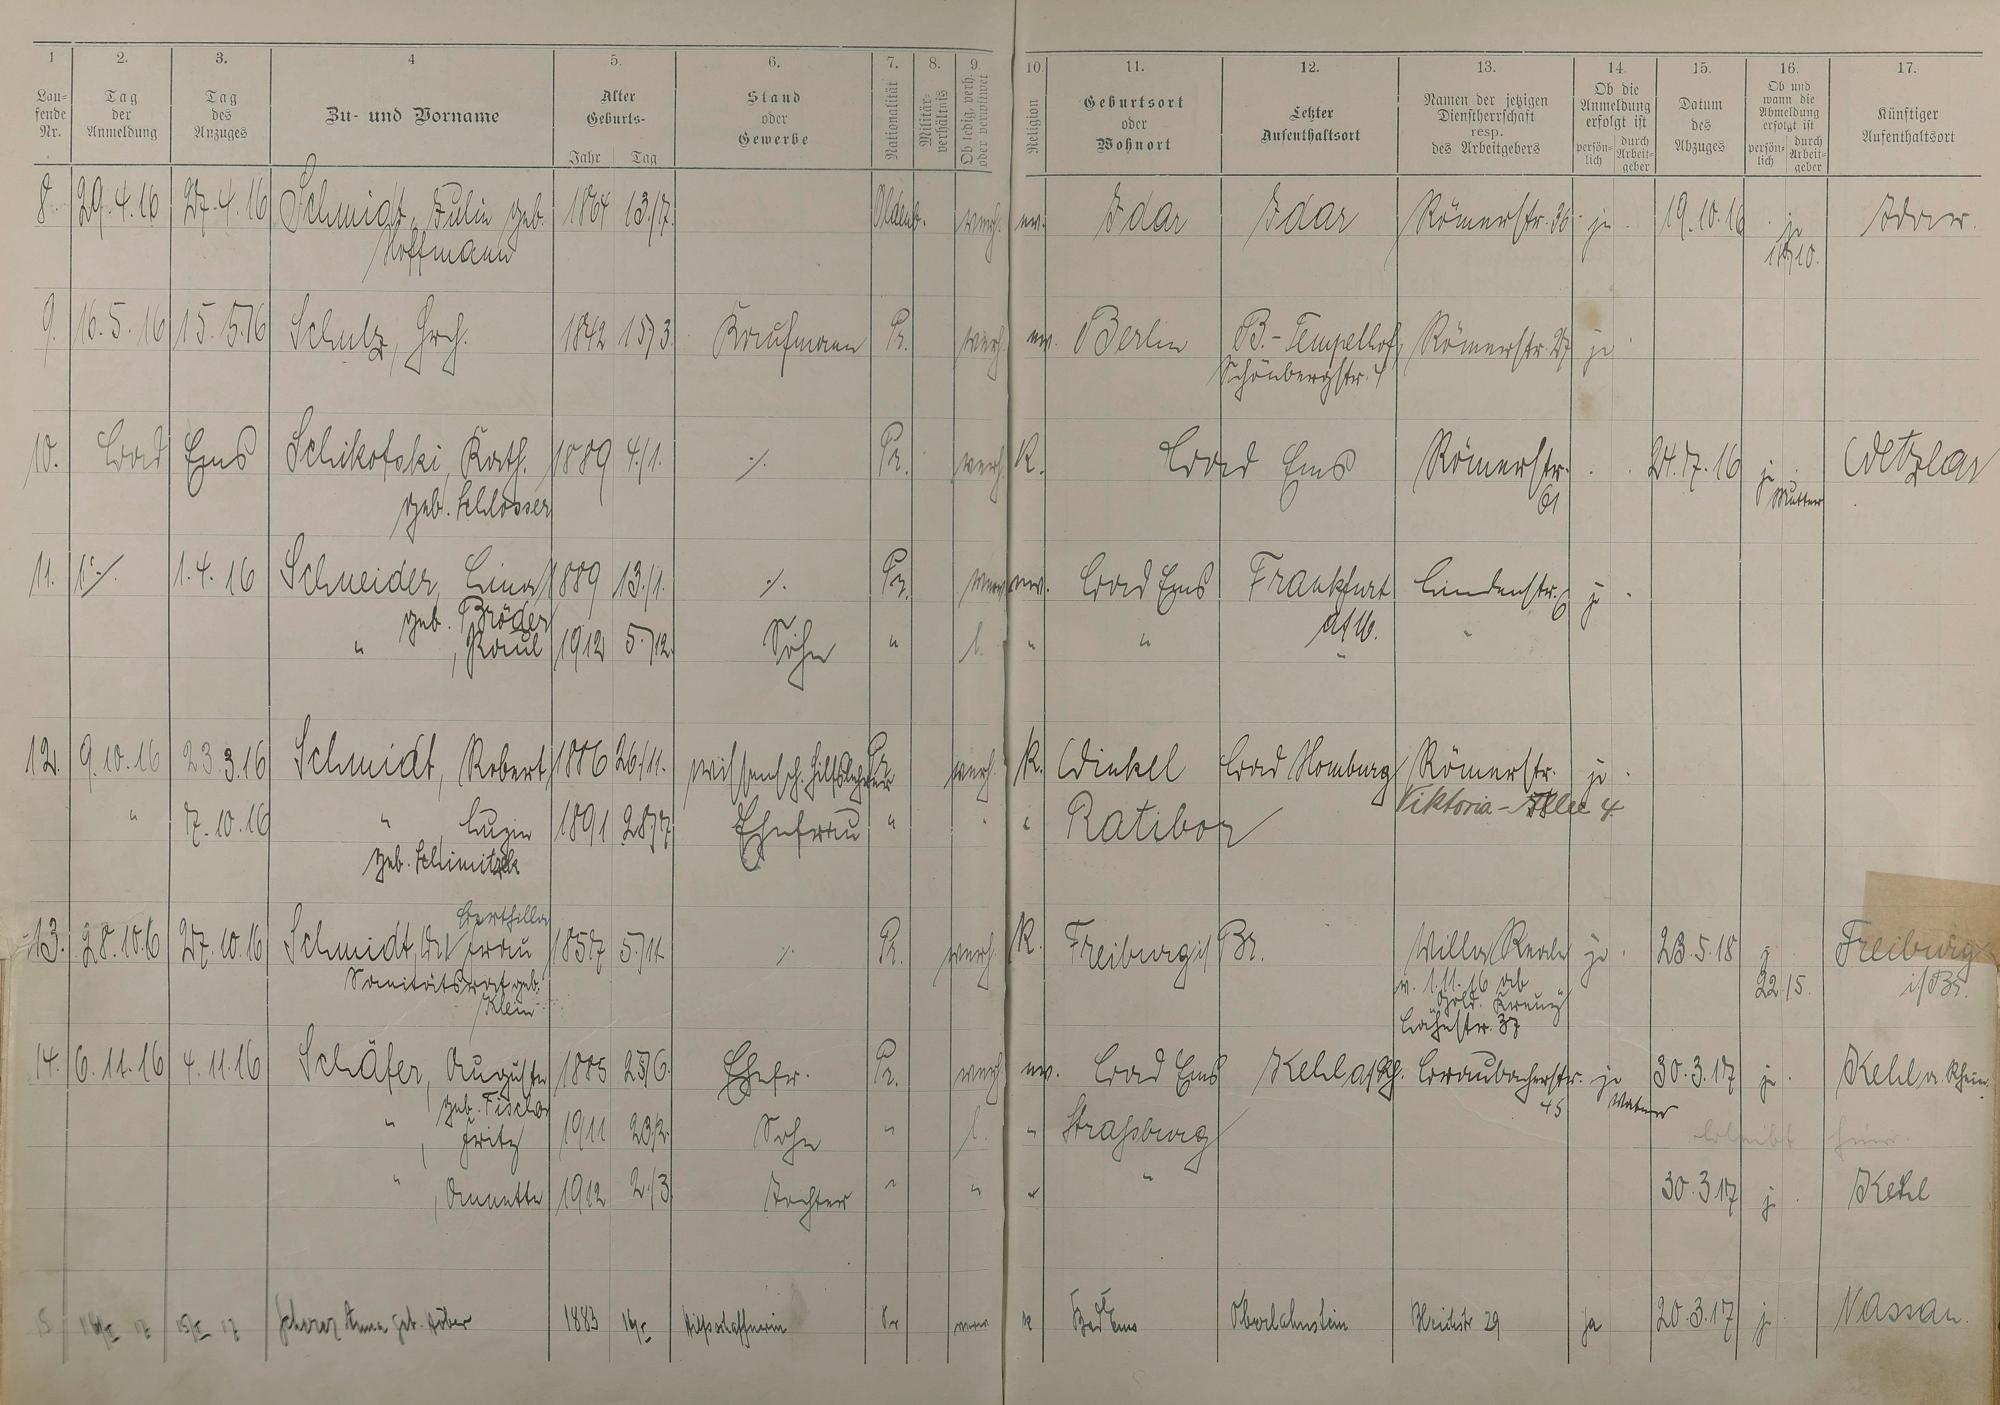 1 2. 3. 4 5. 6. 7. 8. 9. 10. 11. 12. 13. 14. 15. 16. 17.
Lau-
fende
Nr.
Tag
der
Anmeldung
Tag
des
Anzuges
Zu- und Vorname
Alter
Geburts-
Jahr Tag
Stand
oder
Gewerbe
Nationalität
Militär-
verhältnis
Ob ledig, verh.
oder verwitwet
Religion
Geburtsort
oder
Wohnort
Letzter
Aufenthaltsort
Namen der jetzigen
Dienstherrschaft
resp.
des Arbeitgebers
Ob die
Anmeldung
erfolgt ist
persön-
lich
durch
Arbeit-
geber
Datum
des
Abzuges
Ob und
wann die
Abmeldung
erfolgt ist
persön-
lich
durch
Arbeit-
geber
Künftiger
Aufenthaltsort
8. 29.4.16 27.4.16 Schmidt, Julie geb. 1864 13./7. Oldenb. verh. ev. Idar Idar Römerstr. 36 ja 19.10.16 ja Idar.
Hoffmann
9. 16.5.16 15.5.16 Schulz, Hrch. 1842 15/3. Kaufmann Pr. verh. ev. Berlin B.-Tempelhof, Römerstr. 27 ja
Schönbergstr. 4
10. Bad Ems Schikofski, Kath. 1889 4./1. ./. Pr. verh. K. Bad Ems Römerstr. 24.7.16 ja Wetzlar
geb. Schlosser 61 Mutter
11. 1.4.16 Schneider, Lina 1889 13./1. ./. Pr. ev. Bad Ems Frankfurt Lindenstr. 6 ja
geb. Bröder a/M.
" , Raul 1912 5./12. Sohn " l. " "
12. 9.10.16 23.3.16 Schmidt, Robert 1886 26./11. wissensch. Hilfslehrer Pr. verh. K. Winkel Bad Homburg Römerstr. ja
Viktoria-Allee 4
" 7.10.16 " Luzie 1891 28/7 Ehefrau " " " Ratibor
geb. Schimitzek
Berthilla
13. 28.10.16 27.10.16 Schmidt, Frau 1857 5./11 ./. Pr. verh. K. Freiburg i/Br. Villa Reale ja 23.5.18 Freiburg
Sanitätsrat geb. v. 1.11.16 ab 22/5. i/Br.
Klein Gold. Kreuz
Lahnstr. 37
14. 6.11.16 4.11.16 Schäfer, Auguste 1885 25/6. Ehefr. Pr. verh. ev. Bad Ems Kehl a/Rh. Braubacherstr. ja 30.3.17 ja Kehl a. Rhein.
geb. Fischer 45 Vater
" , Fritz 1911 23/2. Sohn " l. " Strassburg bleibt hier.
" , Annette 1912 2./3. Tochter " " " " 30.3.17 ja Kehl
Anna geb. 1883 Hilfsschaffnerin Pr K Bad Ems Oberlahnstein 29 ja 20.3.17 ja Nassau.